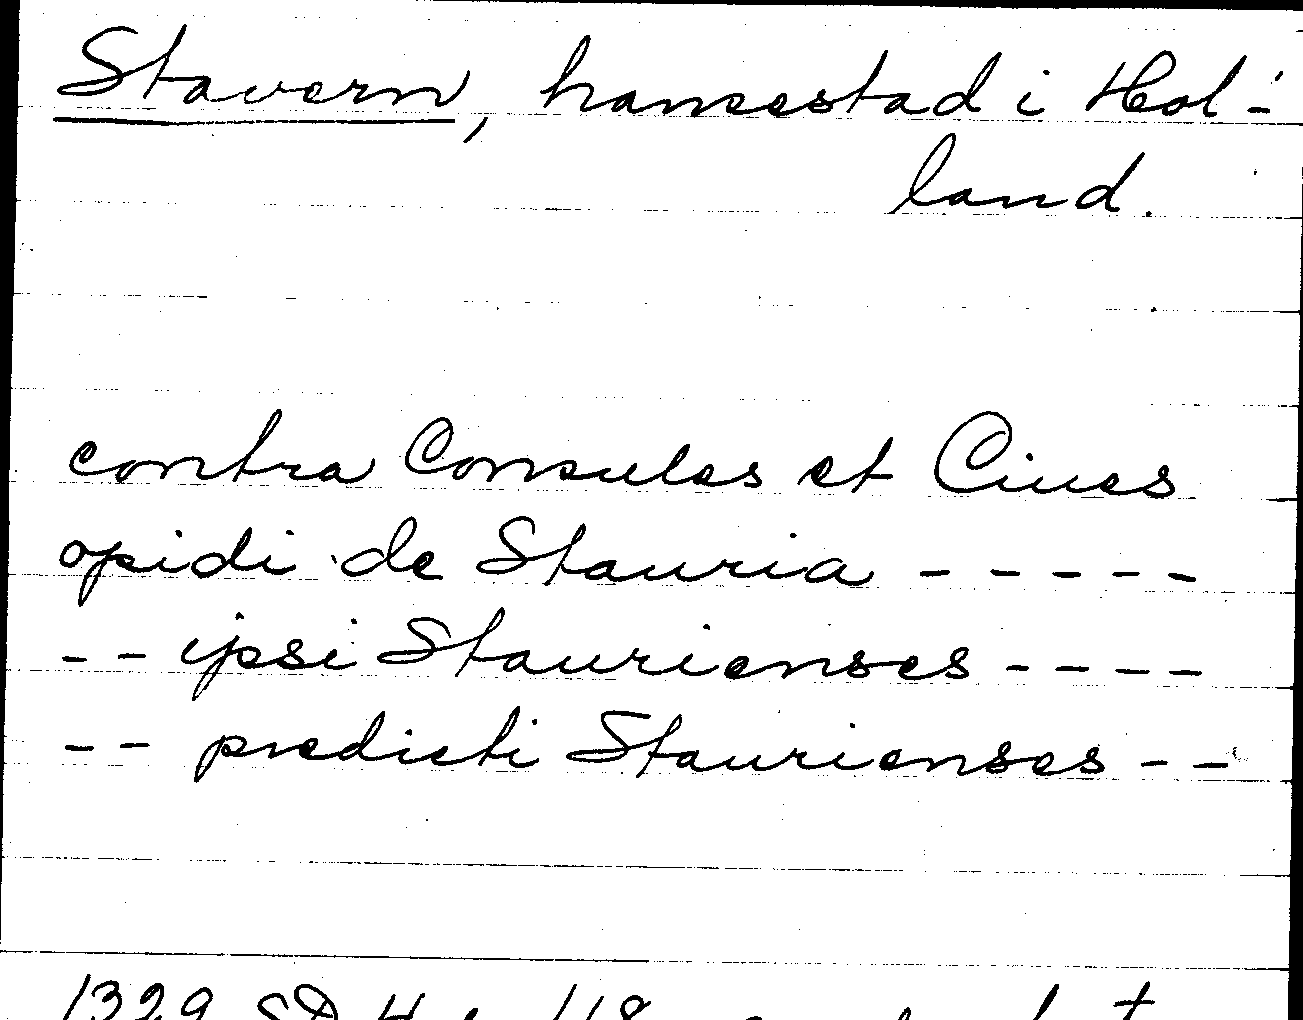 Stavern, hansestad i Hol-
land.
contra Consules et Ciues
opidi de Stauria - - - - -
- - ipsi Staurienses - - - -
- - predicti Staurienses - -
1329 SD 4